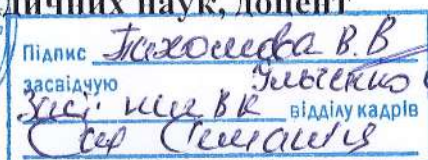 дичних наук, доцент
Підпис Пахомова В. В
засвідчую Ільченко
Заст. нач ВК відділу кадрів